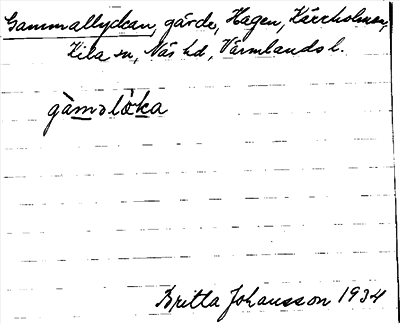 Gammallyckan, gärde, Hagen, Kärrholmen,
Kila sn, Näs hd, Värmlands l.
gàmɔlö̀ka
Britta Johansson 1934